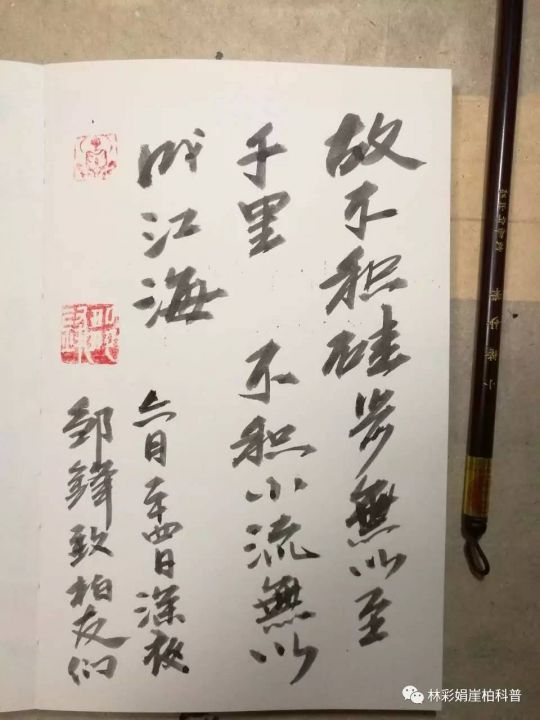 故不积硅步無以至
千里 不积小流無以
成江海
六月二十四日深夜
邹鋒致柏友们
林彩娟崖柏科普